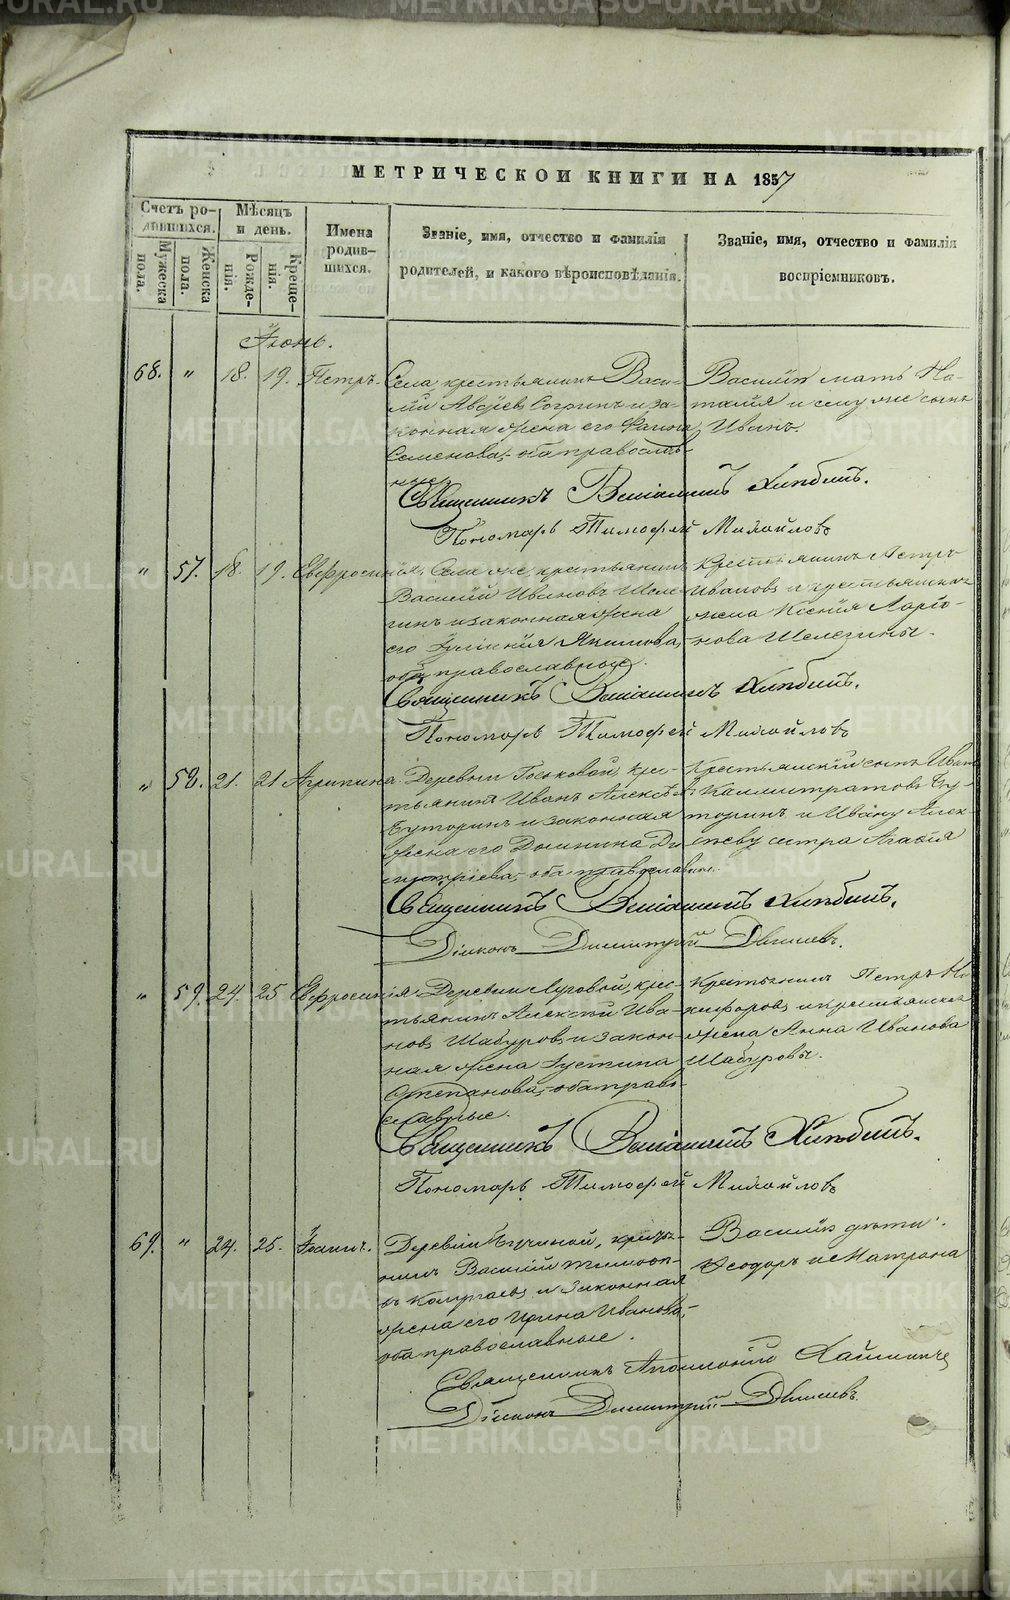 МЕТРИЧЕСКОЙ КНИГИ НА 1857
Счетъ ро-
дившихся.
Мужеска пола.
Женска пола.
Мѣсяцъ
и день.
Рожде-
нія.
Креще-
нія.
Имена
родив-
шихся.
Званіе, имя, отчество и фамилія
родителей, и какого вѣроисповѣданія.
Званіе, имя, отчество и фамилія
воспріемниковъ.
Іюнь.
68. " 18. 19. Петръ.
Села, крестьянинъ Васи-
лій Авдіевъ Согринъ и за-
конная жена его
Семенова, оба православ-
ные.
Василія мать На-
талія и ему же сынъ
Иванъ.
Священникъ Веніаминъ Хлѣбинъ.
Пономарь Тимофей Михайловъ
" 57. 18. 19. Евфросинія.
Села же, крестьянинъ
Василій Ивановъ Шеле-
гинъ и законная жена
его Іуліанія Якимова,
оба православные.
Крестьянинъ Петръ
Ивановъ и крестьянская
жена Ксенія Ларіо-
нова Шелегины.
Священникъ Веніаминъ Хлѣбинъ.
Пономарь Тимофей Михайловъ
" 58. 21. 21 Агрипина.
Деревни крес-
тьянинъ Иванъ Алексѣевъ
Буторинъ и законная
жена его Домнина Ди-
митріева, оба православные.
Крестьянскій сынъ Иванъ
Каллистратовъ Бу-
торинъ и Ивану Алек-
сѣеву сестра Агафія
Священникъ Веніаминъ Хлѣбинъ.
Діаконъ Димитрій
" 59. 24. 25 Евфросинія
Деревни Луговой, крес-
тьянинъ Алексѣй Ива-
новъ Шабуровъ и закон-
ная жена Іустина
Степанова, оба право-
славные.
Крестьянинъ Петръ Ни-
кифоровъ и крестьянская
жена Анна Иванова
Шабуровы.
Священникъ Веніаминъ Хлѣбинъ.
Пономарь Тимофей Михайловъ
69. " 24. 25. Іоаннъ.
Деревни крестья-
нинъ Василій Тимофе-
евъ и законная
жена его Ирина Иванова,
оба православные.
Василія дѣти:
Ѳеодоръ и Матрона
Священникъ Аполлоній
Діаконъ Димитрій
METRIKI.GASO-URAL.RU